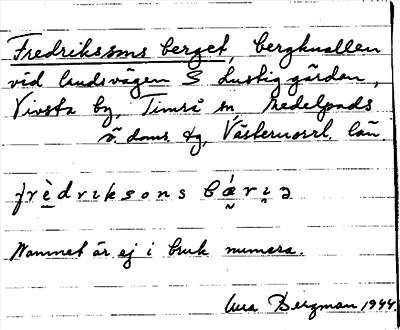 Fredrikssons berget, bergknallen
vid landsvägen S Lustiggården,
Vivsta by, Timrå sn, Medelpads
ö. doms. tg, Västernorrl. län.
frèdriksons bǽriə
Namnet är ej i bruk numera.
Bergman 1944.